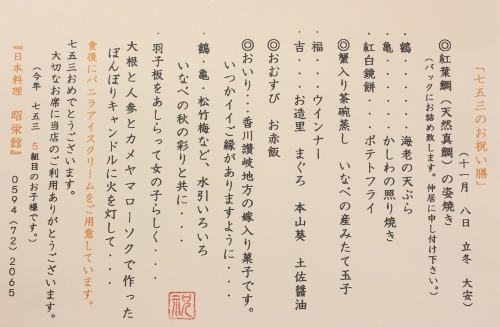 「七五三のお祝い膳」
(十一月 八日 立冬 大安)
◎紅葉鯛(天然真鯛)の姿焼き
(パックにお詰め致します。仲居に申し付け下さい。)
・鶴・・・・・海老の天ぷら
・亀・・・・・かしわの照り焼き
・紅白鏡餅・・・・ポテトフライ
◎蟹入り茶碗蒸し いなべの産みたて玉子
・福・・・ウインナー
・吉・・・お造里 まぐろ 本山葵 土佐醤油
◎おむすび お赤飯
◎おいり・・・香川讃岐地方の嫁入り菓子です。
いつかイイご縁がありますように・・・・
・鶴・亀・松竹梅など、水引いろいろ
いなべの秋の彩りと共に・・・
・羽子板をあしらって女の子らしく・・・
大根と人参とカメヤマローソクで作った
ぼんぼりキャンドルに火を灯して・・・
食後にバニラアイスクリームをご用意しています。
七五三おめでとうございます。
大切なお席に当店のご利用ありがとうございます。
(今年 七五三 5組目のお子様です。)
『日本料理 昭栄館』 0594(72)2065
祝